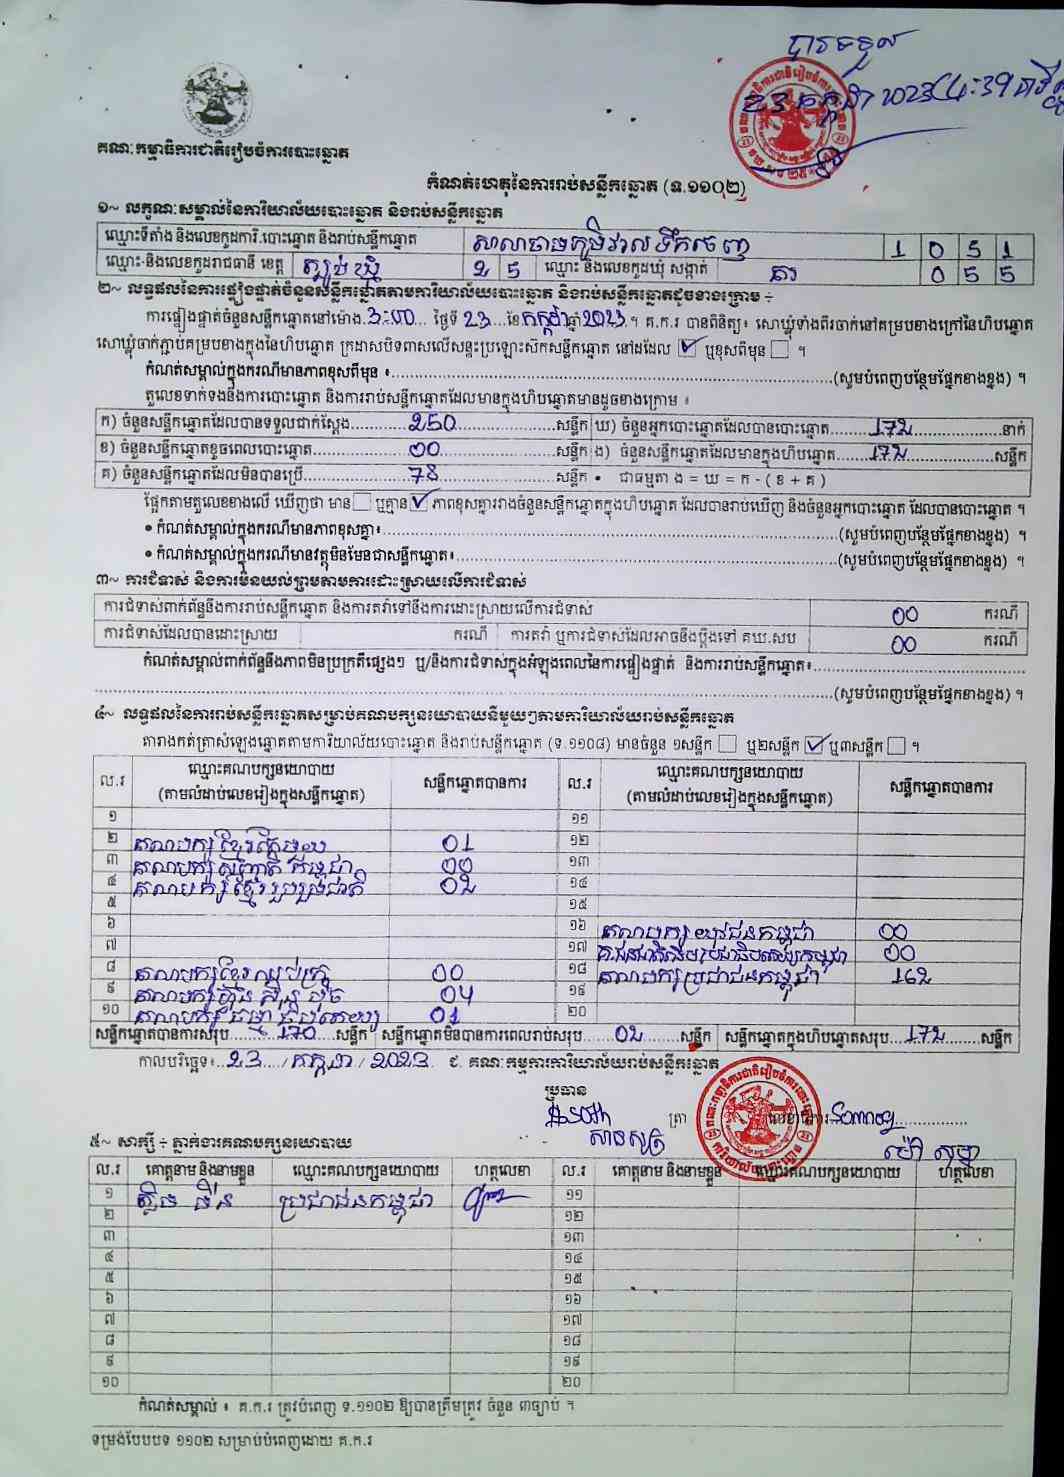 បានទទួល
23 កក្កដា 2023
គណៈកម្មាធិការជាតិរៀបចំការបោះឆ្នោត
កំណត់ហេតុនៃការរាប់សន្លឹកឆ្នោត (ទ.១១០២)
១~ លក្ខណៈសម្គាល់នៃការិយាល័យបោះឆ្នោត និងរាប់សន្លឹកឆ្នោត
ឈ្មោះទីតាំង និងលេខកូដការិ.បោះឆ្នោត និងរាប់សន្លឹកឆ្នោត សាលាធម្មភូមិវាលទឹកចេញ 1 0 5 1
ឈ្មោះ-និងលេខកូដរាជធានី ខេត្ត ត្បូងឃ្មុំ 2 5 ឈ្មោះ និងលេខកូដឃុំ សង្កាត់ គរ 0 5 5
២~ លទ្ធផលនៃការផ្ទៀងផ្ទាត់ចំនួនសន្លឹកឆ្នោតតាមការិយាល័យបោះឆ្នោត និងរាប់សន្លឹកឆ្នោតដូចខាងក្រោម ÷
ការផ្ទៀងផ្ទាត់ចំនួនសន្លឹកឆ្នោតនៅម៉ោង.3:00... ថ្ងៃទី 23 ខែកក្កដាឆ្នាំ 2023.។ គ.ក.រ បានពិនិត្យ៖ សោឃ្លុំទាំងពីរចាក់នៅគម្របខាងក្រៅនៃហិបឆ្នោត
សោឃ្លុំចាក់ភ្ជាប់គម្របខាងក្នុងនៃហិបឆ្នោត ក្រដាសបិទពាសលើសន្ទះប្រឡោះស៊កសន្លឹកឆ្នោត នៅដដែល ☑ ឬខុសពីមុន ☐ ។
កំណត់សម្គាល់ក្នុងករណីមានភាពខុសពីមុន ៖......(សូមបំពេញបន្ថែមផ្នែកខាងខ្នង) ។
តួលេខទាក់ទងនឹងការបោះឆ្នោត និងការរាប់សន្លឹកឆ្នោតដែលមានក្នុងហិបឆ្នោតមានដូចខាងក្រោម ៖
ក) ចំនួនសន្លឹកឆ្នោតដែលបានទទួលជាក់ស្តែង......250......សន្លឹក ឃ) ចំនួនអ្នកបោះឆ្នោតដែលបានបោះឆ្នោត......172......នាក់
ខ) ចំនួនសន្លឹកឆ្នោតខូចពេលបោះឆ្នោត......00......សន្លឹក ង) ចំនួនសន្លឹកឆ្នោតដែលមានក្នុងហិបឆ្នោត......172......សន្លឹក
គ) ចំនួនសន្លឹកឆ្នោតដែលមិនបានប្រើ......78......សន្លឹក • ជាធម្មតា ង = ឃ = ក - ( ខ + គ )
ផ្អែកតាមតួលេខខាងលើ ឃើញថា មាន ☐ ឬគ្មាន ☑ ភាពខុសគ្នារវាងចំនួនសន្លឹកឆ្នោតក្នុងហិបឆ្នោត ដែលបានរាប់ឃើញ និងចំនួនអ្នកបោះឆ្នោត ដែលបានបោះឆ្នោត ។
• កំណត់សម្គាល់ក្នុងករណីមានភាពខុសគ្នា៖......(សូមបំពេញបន្ថែមផ្នែកខាងខ្នង) ។
• កំណត់សម្គាល់ក្នុងករណីមានវត្ថុមិនមែនជាសន្លឹកឆ្នោត៖......(សូមបំពេញបន្ថែមផ្នែកខាងខ្នង) ។
៣~ ការជំទាស់ និងការមិនយល់ព្រមតាមការដោះស្រាយលើការជំទាស់
ការជំទាស់ពាក់ព័ន្ធនឹងការរាប់សន្លឹកឆ្នោត និងការតវ៉ាទៅនឹងការដោះស្រាយលើការជំទាស់ 00 ករណី
ការជំទាស់ដែលបានដោះស្រាយ ករណី ការតវ៉ា ឬការជំទាស់ដែលអាចនឹងប្តឹងទៅ គឃ.សប 00 ករណី
កំណត់សម្គាល់ពាក់ព័ន្ធនឹងភាពមិនប្រក្រតីផ្សេងៗ ឬ/និងការជំទាស់ក្នុងអំឡុងពេលនៃការផ្ទៀងផ្ទាត់ និងការរាប់សន្លឹកឆ្នោត៖......
......(សូមបំពេញបន្ថែមផ្នែកខាងខ្នង) ។
៤~ លទ្ធផលនៃការរាប់សន្លឹកឆ្នោតសម្រាប់គណបក្សនយោបាយនីមួយៗតាមការិយាល័យរាប់សន្លឹកឆ្នោត
តារាងកត់ត្រាសំឡេងឆ្នោតតាមការិយាល័យបោះឆ្នោត និងរាប់សន្លឹកឆ្នោត (ទ.១១០៨) មានចំនួន ១សន្លឹក ☐ ឬ២សន្លឹក ☑ ឬ៣សន្លឹក ☐ ។
ល.រ ឈ្មោះគណបក្សនយោបាយ (តាមលំដាប់លេខរៀងក្នុងសន្លឹកឆ្នោត) សន្លឹកឆ្នោតបានការ ល.រ ឈ្មោះគណបក្សនយោបាយ (តាមលំដាប់លេខរៀងក្នុងសន្លឹកឆ្នោត) សន្លឹកឆ្នោតបានការ
១ ១១
២ គណបក្សខ្មែរតែមួយ 01 ១២
៣ គណបក្សសញ្ជាតិកម្ពុជា 00 ១៣
៤ គណបក្សខ្មែររួបរួមជាតិ 02 ១៤
៥ ១៥
៦ ១៦ គណបក្សយុវជនកម្ពុជា 00
៧ ១៧ គ.ជនជាតិដើមប្រជាធិបតេយ្យកម្ពុជា 00
៨ គណបក្សខ្មែរឈប់ក្រ 00 ១៨ គណបក្សប្រជាជនកម្ពុជា 162
៩ គណបក្សហ៊្វុនស៊ិនប៉ិច 04 ១៩
១០ គណបក្សធម្មាធិបតេយ្យ 01 ២០
សន្លឹកឆ្នោតបានការសរុប......170......សន្លឹក សន្លឹកឆ្នោតមិនបានការពេលរាប់សរុប......02......សន្លឹក សន្លឹកឆ្នោតក្នុងហិបឆ្នោតសរុប...172...សន្លឹក
កាលបរិច្ឆេទ៖..23..../កក្កដា/2023. ជ. គណៈកម្មការការិយាល័យរាប់សន្លឹកឆ្នោត
ប្រធាន
ត្រា លេខាធិការ
៥~ សាក្សី ÷ ភ្នាក់ងារគណបក្សនយោបាយ
ល.រ គោត្តនាម និងនាមខ្លួន ឈ្មោះគណបក្សនយោបាយ ហត្ថលេខា ល.រ គោត្តនាម និងនាមខ្លួន ឈ្មោះគណបក្សនយោបាយ ហត្ថលេខា
១ ប្រជាជនកម្ពុជា ១១
២ ១២
៣ ១៣
៤ ១៤
៥ ១៥
៦ ១៦
៧ ១៧
៨ ១៨
៩ ១៩
១០ ២០
កំណត់សម្គាល់ ៖ គ.ក.រ ត្រូវបំពេញ ទ.១១០២ ឱ្យបានត្រឹមត្រូវ ចំនួន ៣ច្បាប់ ។
ទម្រង់បែបបទ ១១០២ សម្រាប់បំពេញដោយ គ.ក.រ